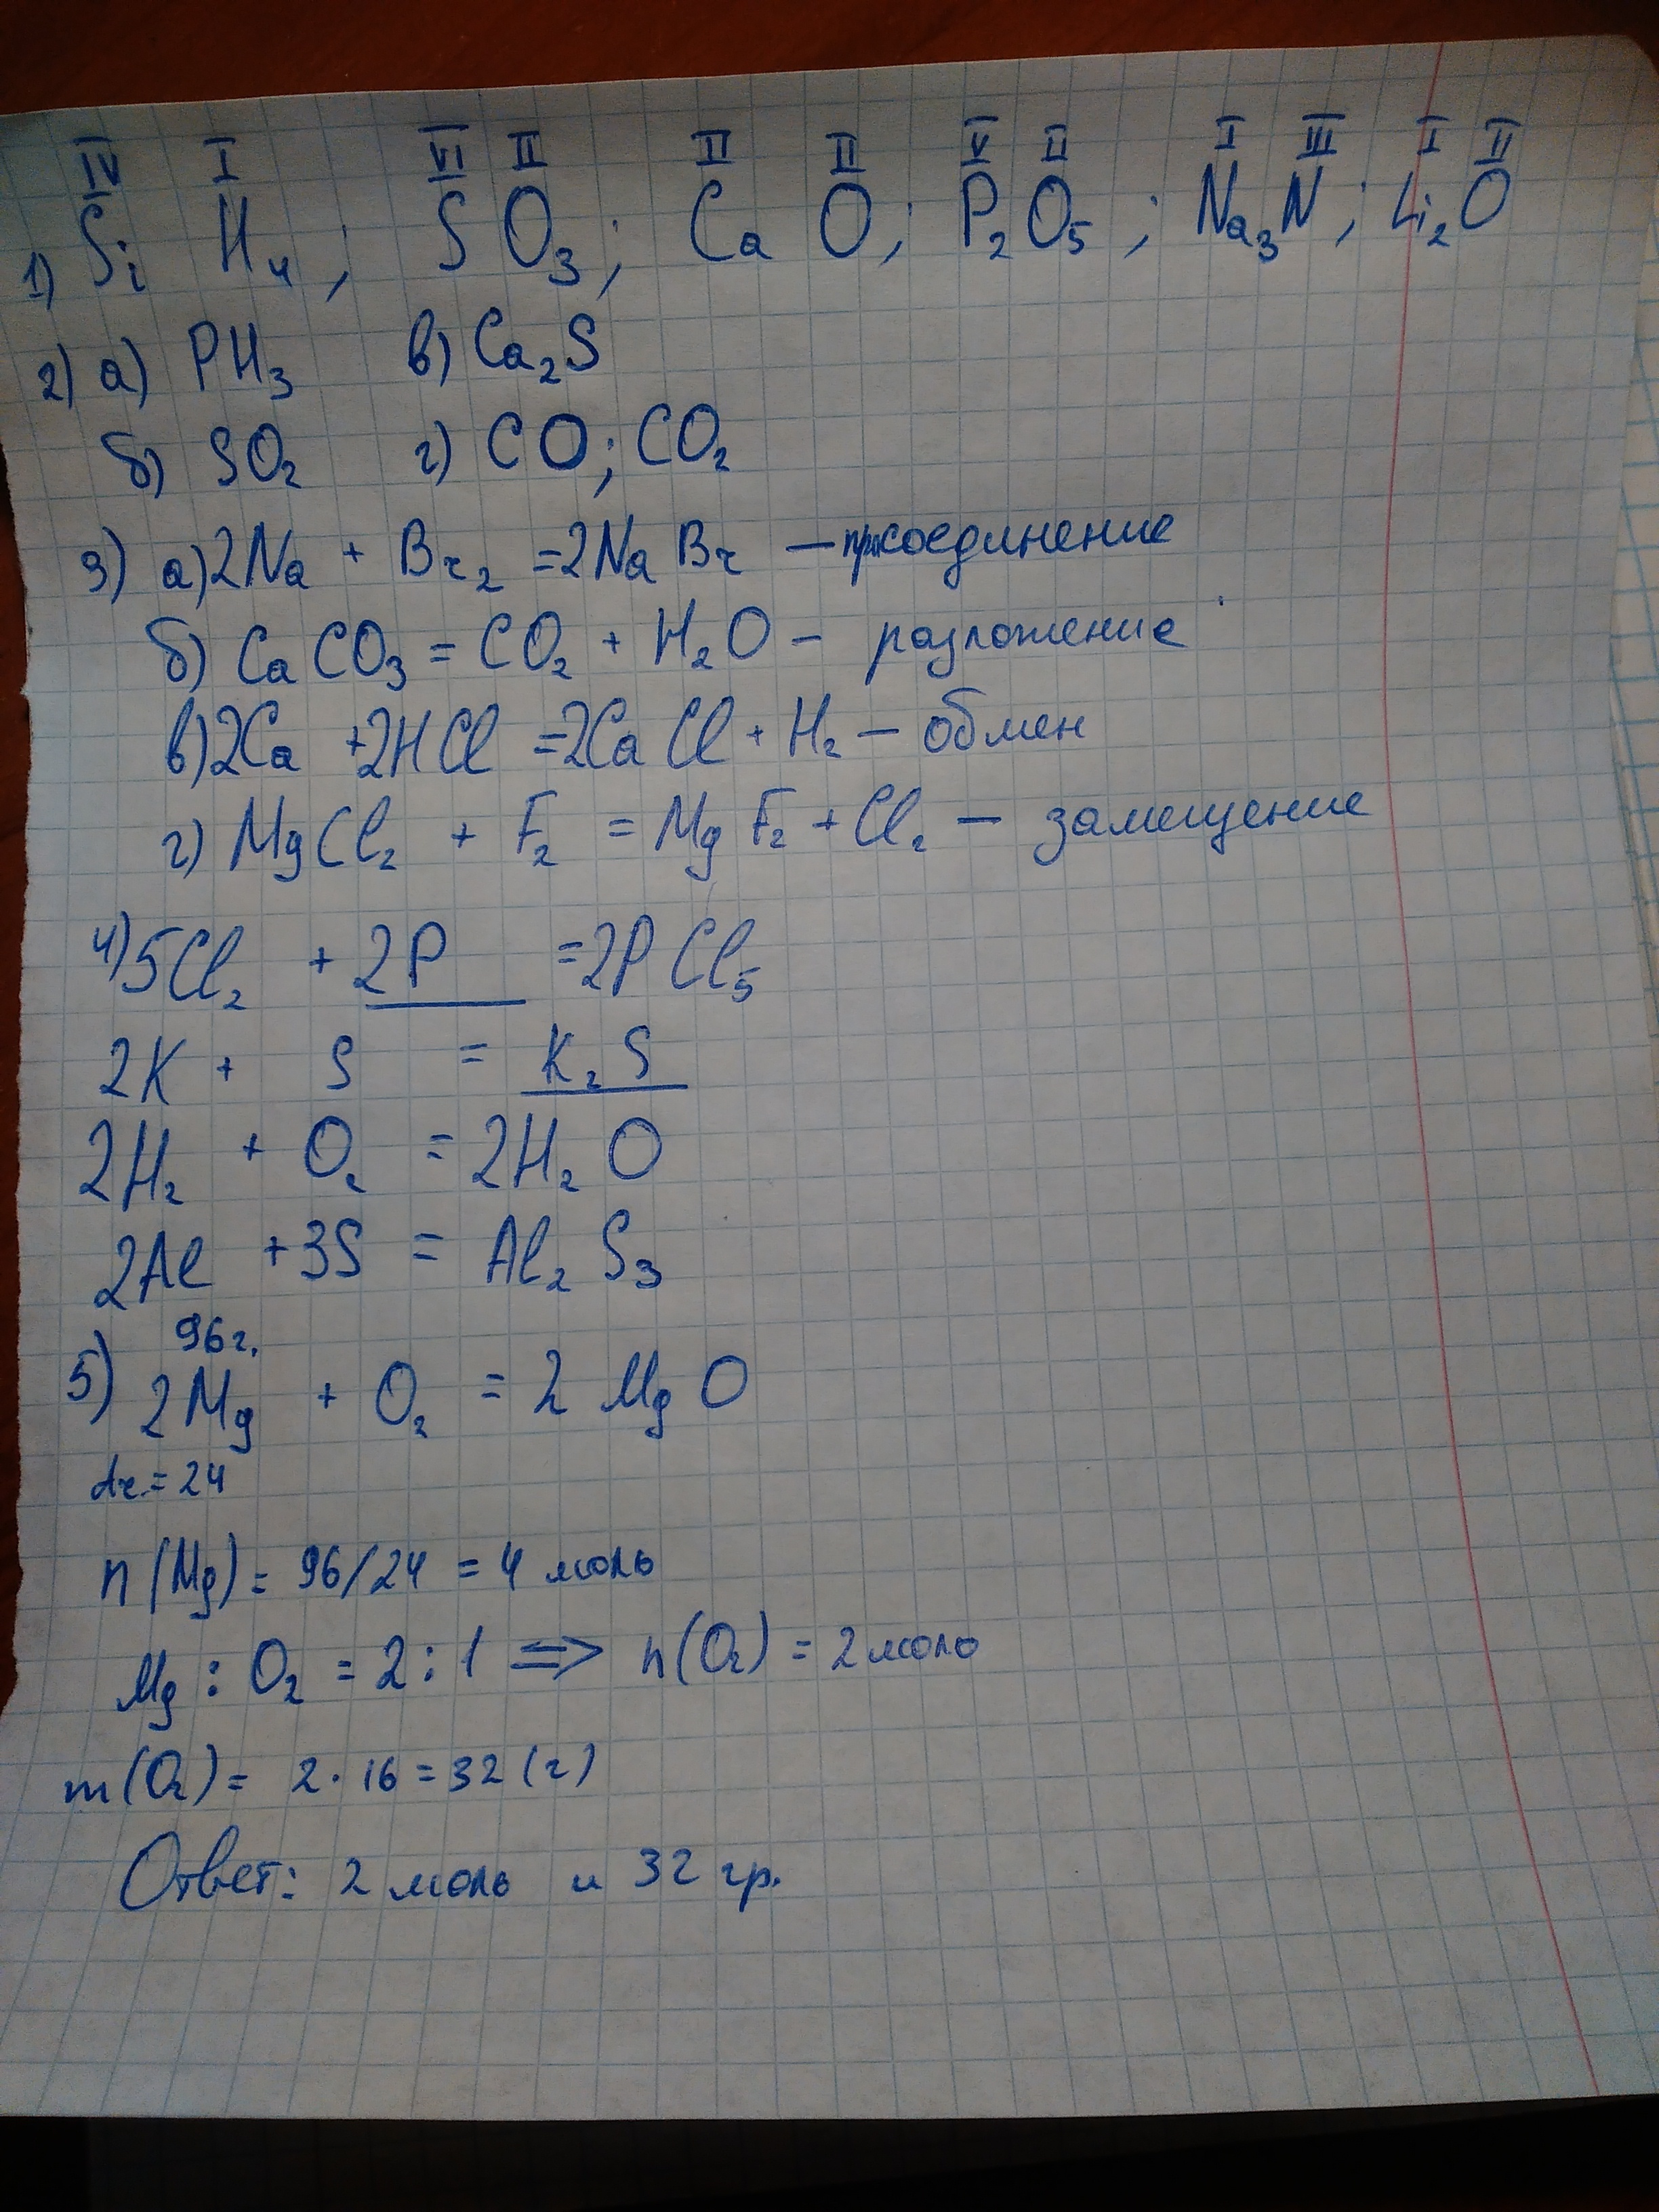 IV I VI II II II V II I III I II
1) SiH₄; SO₃; CaO; P₂O₅; Na₃N; Li₂O
2) а) PH₃ в) Ca₂S
б) SO₂ г) CO; CO₂
3) а) 2Na + Br₂ = 2NaBr — присоединение
б) CaCO₃ = CO₂ + H₂O – разложение
в) 2Ca + 2HCl = 2CaCl + H₂ – обмен
г) MgCl₂ + F₂ = MgF₂ + Cl₂ — замещение
4) 5Cl₂ + 2P = 2PCl₅
2K + S = K₂S
2H₂ + O₂ = 2H₂O
2Al + 3S = Al₂S₃
96г.
5) 2Mg + O₂ = 2MgO
Ar = 24
n(Mg) = 96/24 = 4 моль
Mg : O₂ = 2 : 1 => n(O₂) = 2 моль
m(O₂) = 2·16 = 32 (г)
Ответ: 2 моль и 32 гр.